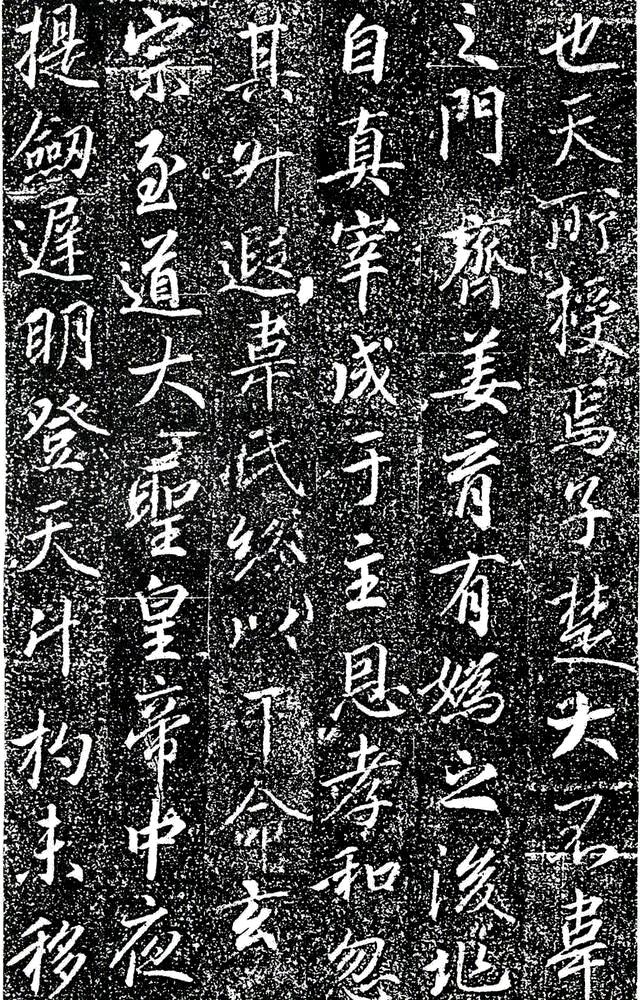 也天所授焉子楚大不韋
之門齊姜育有媯之後地
自真宰成于主恩孝和忽
其升遐韋氏紛以干命玄
宗至道大聖皇帝中夜
提劒遲明登天斗杓未移